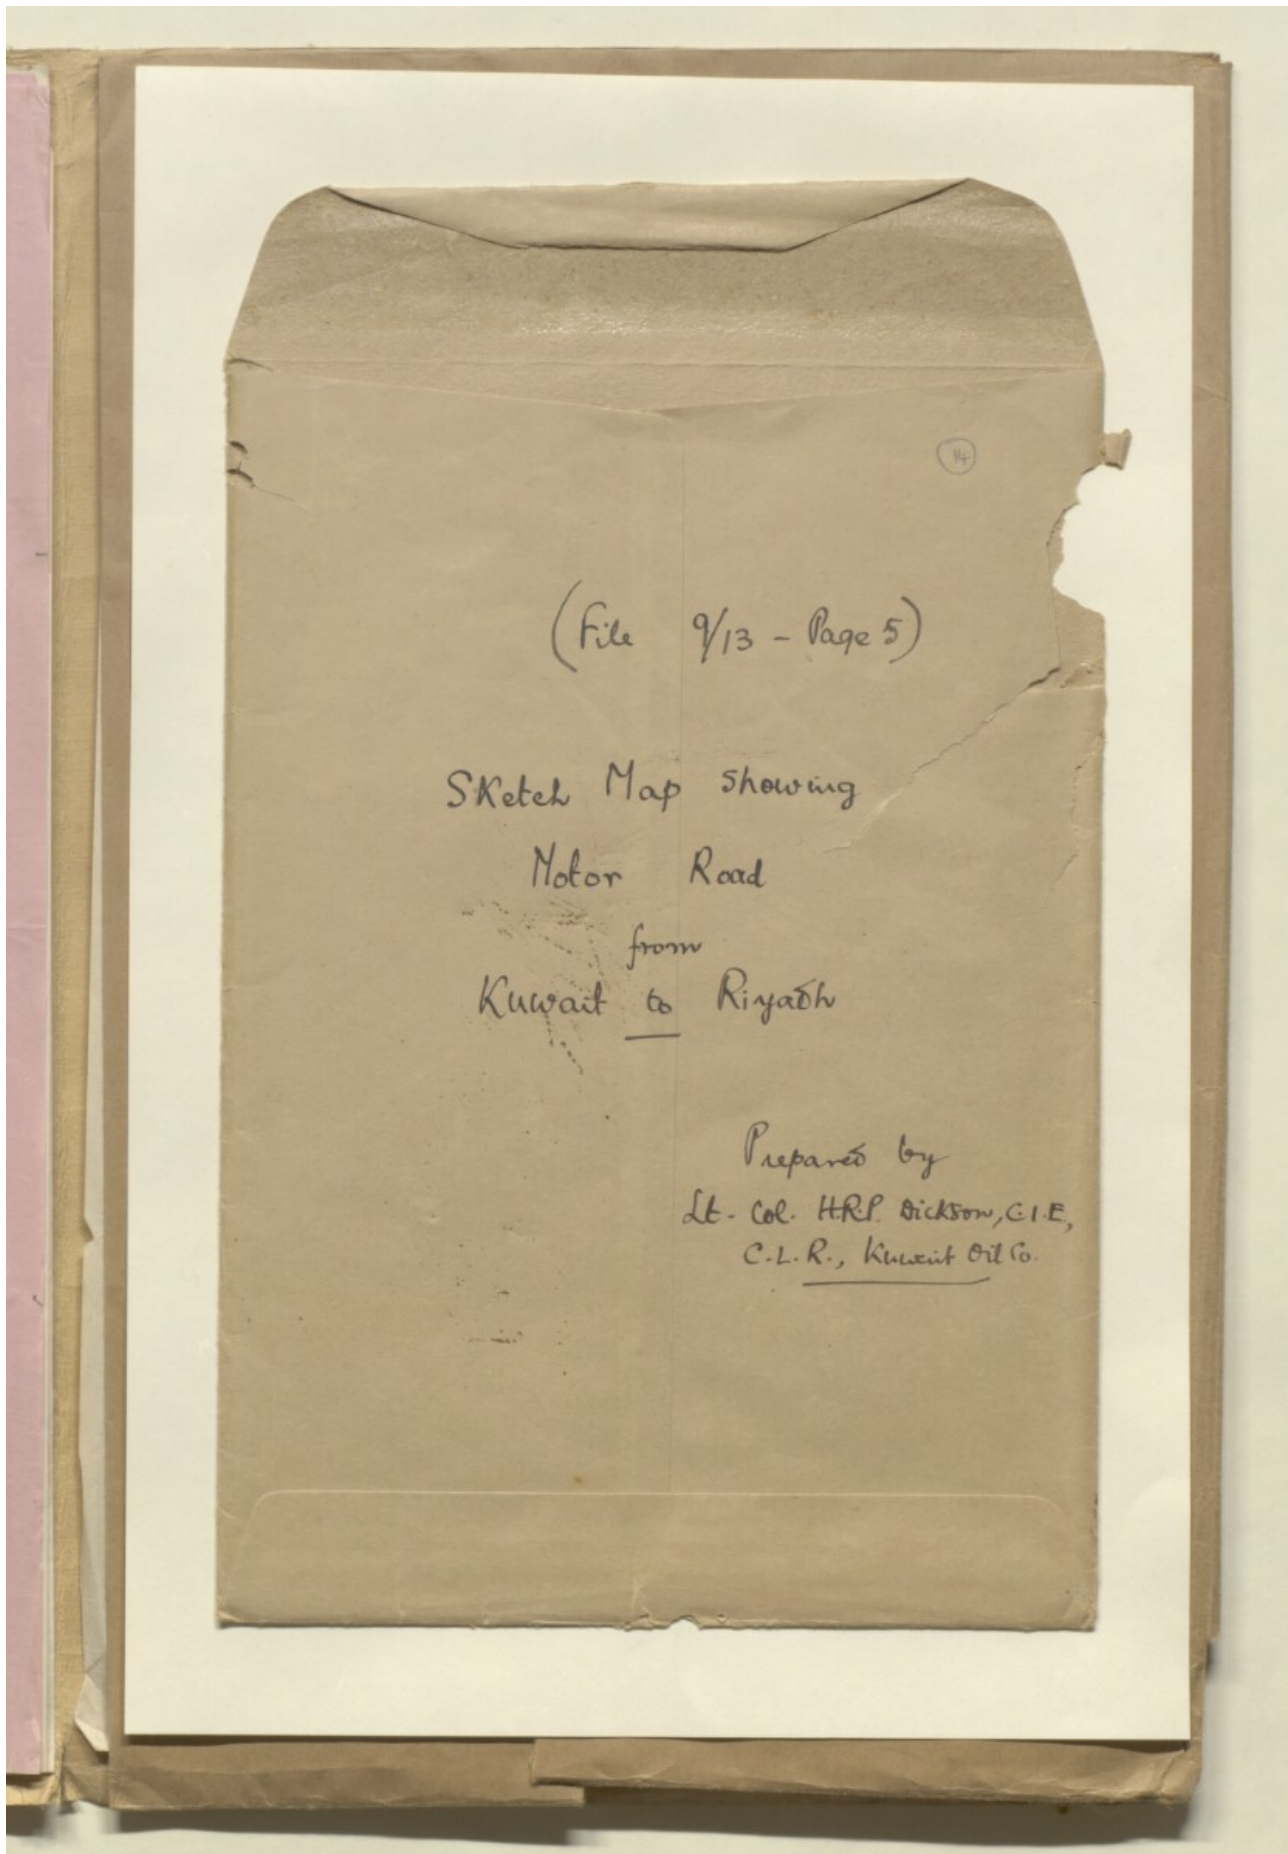 14
(File 9/13 - Page 5)
Sketch Map showing
Motor Road
from
Kuwait to Riyadh
Prepared by
Lt. Col. H.R.P. Dickson, C.I.E,
C.L.R., Kuwait Oil Co.